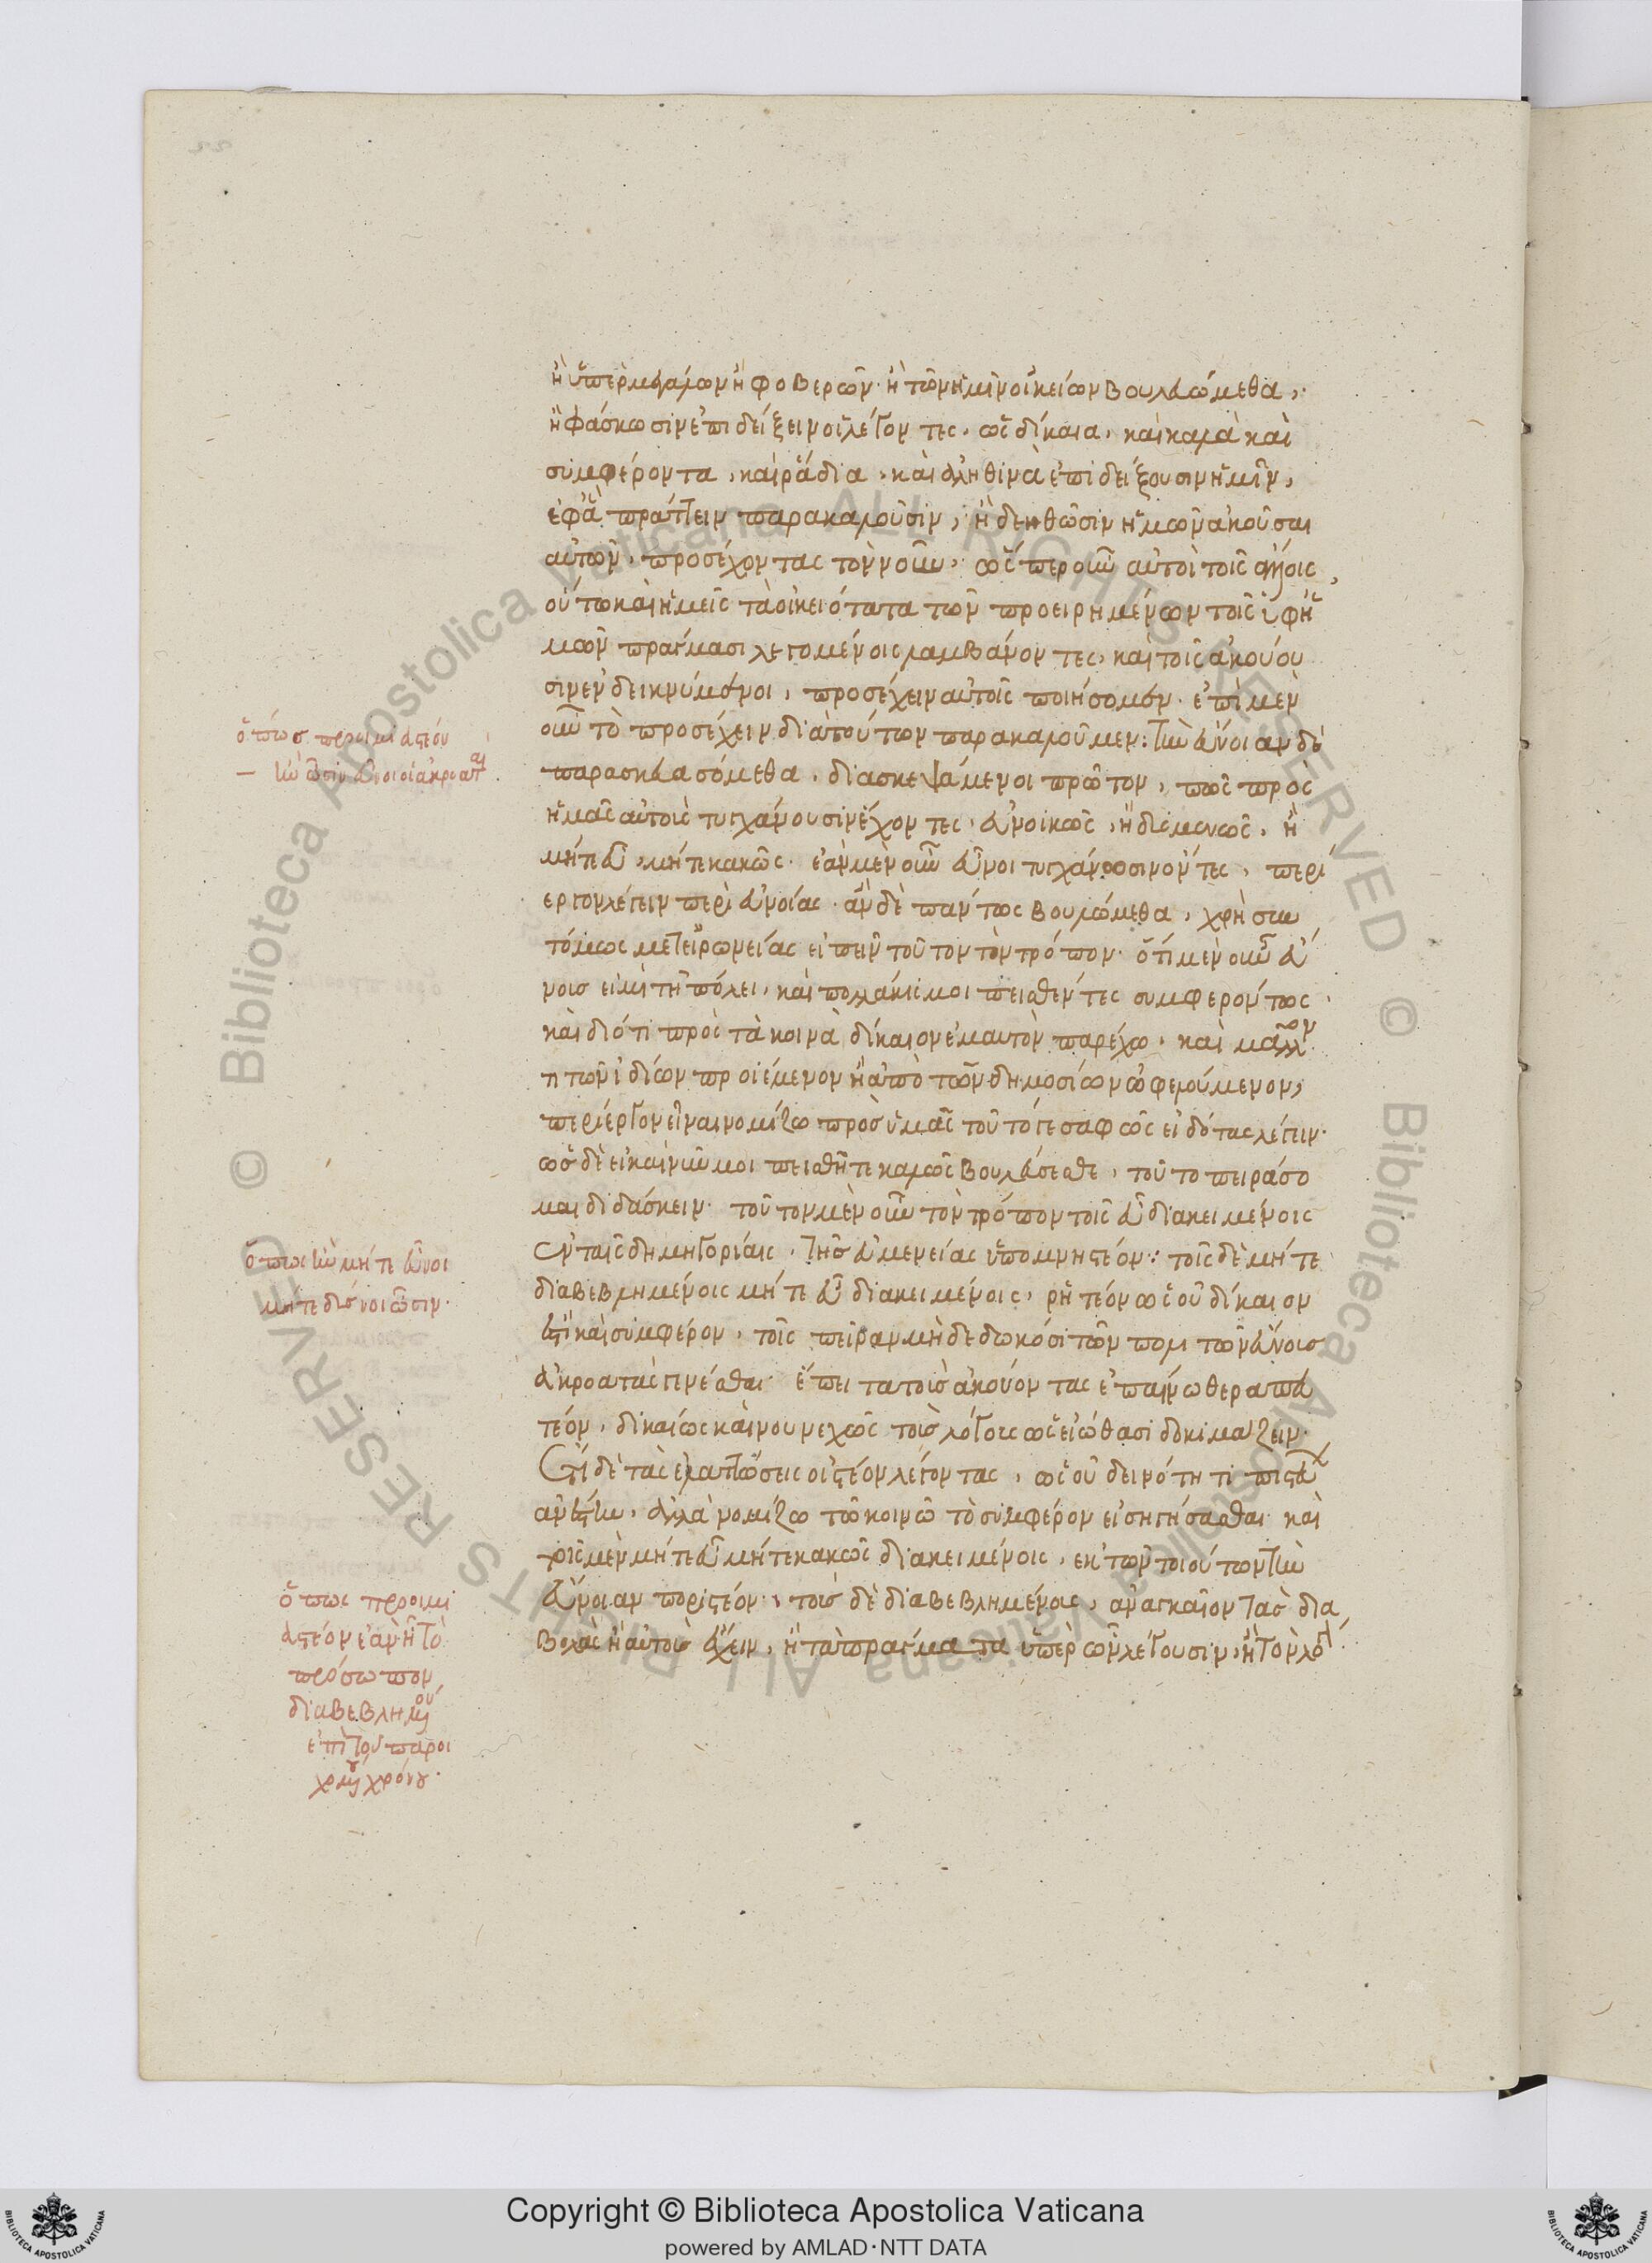 ἢ ὑπὲρ μεγάλων ἢ φοβερῶν· ἢ τῶν ἡμῖν οἰκείων βουλευώμεθα,
ἢ φάσκωσιν ἐπιδείξειν οἱ λέγοντες, ὡς δίκαια, καὶ καλὰ καὶ
συμφέροντα, καὶ ῥάδια, καὶ ἀληθινὰ ἐπιδείξουσιν ἡμῖν,
ἐφ' ἃ πράττειν παρακαλοῦσιν, ἢ δεηθῶσιν ἡμῶν ἀκοῦσαι
αὐτῶν, προσέχοντας τὸν νοῦν, ὥσπερ οὖν αὐτοὶ τοῖς ἄλλοις,
οὕτω καὶ ἡμεῖς τὰ οἰκειότατα τῶν προειρημένων τοῖς ὑφ' ἡ
μῶν πράγμασι λεγομένοις λαμβάνοντες, καὶ τοῖς ἀκούου
σιν ἐνδεικνύμενοι, προσέχειν αὐτοῖς ποιήσομεν· ἐπὶ μὲν
οὖν τὸ προσέχειν διὰ τούτων παρακαλοῦμεν: τὴν εὔνοιαν δὲ
παρασκευασόμεθα, διασκεψάμενοι πρῶτον, πῶς πρὸς
ἡμᾶς αὐτοὺς τυγχάνουσιν ἔχοντες, εὐνοικῶς, ἢ δυσμενῶς, ἢ
μήτε εὖ, μήτε κακῶς· ἐὰν μὲν οὖν εὖνοι τυγχάνωσιν ὄντες, περί
εργον λέγειν περὶ εὐνοίας· ἂν δὲ πάντως βουλώμεθα, χρὴ συν
τόμως μετ' εἰρωνείας εἰπεῖν τοῦτον τὸν τρόπον· ὅτι μὲν οὖν εὔ
νους εἰμὶ τῇ πόλει, καὶ πολλάκις μοι πεισθέντες συμφερόντως
καὶ διότι πρὸς τὰ κοινὰ δίκαιον ἐμαυτὸν παρέχω, καὶ μᾶλλον
τι τῶν ἰδίων προιέμενον ἢ ἀπὸ τῶν δημοσίων ὠφελούμενον,
περίεργον εἶναι νομίζω πρὸς ὑμᾶς τοῦτό γε σαφῶς εἰδότας λέγειν·
ὡς δὲ εἰ καὶ νῦν μοι πεισθῆτε καλῶς βουλεύσεσθε, τοῦτο πειράσο
μαι διδάσκειν· τοῦτον μὲν οὖν τὸν τρόπον τοῖς εὖ διακειμένοις
ἐν ταῖς δημηγορίαις, τῆς εὐμενείας ὑπομνηστέον: τοῖς δὲ μήτε
διαβεβλημένοις μήτε εὖ διακειμένοις, ῥητέον ὡς οὐ δίκαιον
ἐστὶ καὶ συμφέρον, τοῖς πεῖραν μὴ δεδωκόσι τῶν πολιτῶν εὔνους
ἀκροατὰς γενέσθαι· ἔπειτα τοὺς ἀκούοντας ἐπαίνω θεραπευ
τέον, δικαίως καὶ νουνεχῶς τοὺς λόγους ὡς εἰώθασι δοκιμάζειν·
ἔτι δὲ τὰς ἐλαττώσεις οἰστέον λέγοντας, ὡς οὐ δεινότητι πιστεύ
ων ἀνέστην, ἀλλὰ νομίζω τῷ κοινῷ τὸ συμφέρον εἰσηγήσασθαι· καὶ
τοῖς μὲν μήτε εὖ μήτε κακῶς διακειμένοις, ἐκ τῶν τοιούτων τὴν
εὔνοιαν ποριστέον, τοὺς δὲ διαβεβλημένους, ἀναγκαῖον τὰς δια
βολὰς ἢ αὐτοὺς ἔχειν, ἢ τὰ πράγματα ὑπὲρ ὧν λέγουσιν, ἢ τὸν λό
ὅπως προοιμιαστέον
ἢν ὦσιν εὖνοι οἱ ἀκροαταί.
ὅπως ἢν μήτε εὖνοι
μήτε δύσνοι ὦσιν·
ὅπως προοιμι
αστέον ἐὰν ἢ τὸ
πρόσωπον
διαβεβλημένον
ἐπὶ τοῦ παροι
χομένου χρόνου·
Copyright © Biblioteca Apostolica Vaticana
powered by AMLAD·NTT DATA